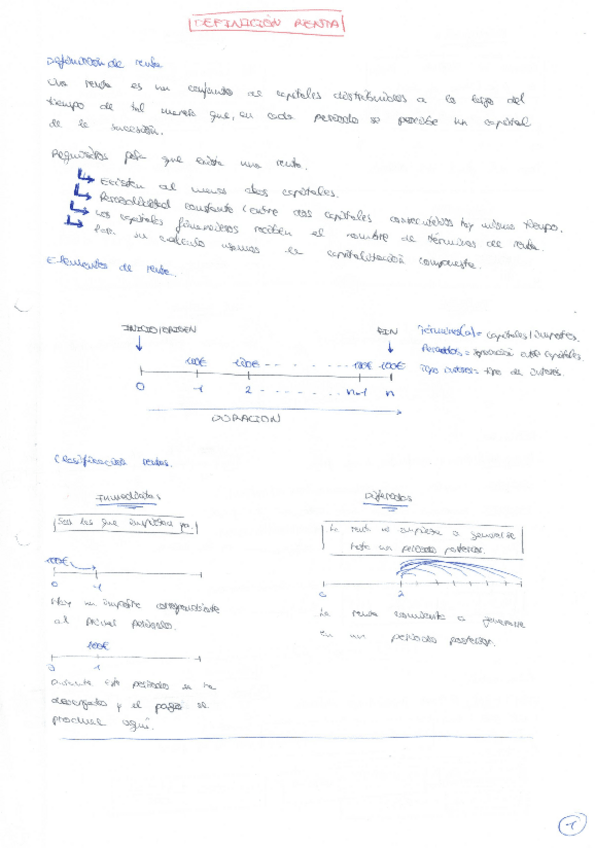 DEFINICIÓN RENTA
Definición de renta
Una renta es un conjunto de capitales distribuidos a lo largo del
tiempo de tal manera que, en cada periodo se percibe un capital
de la sucesión.
Requisitos para que exista una renta.
Existen al menos dos capitales.
Periodicidad constante (entre dos capitales consecutivos hay mismo tiempo.
Los capitales financieros reciben el nombre de términos de renta.
Para su cálculo usamos la capitalización compuesta.
Elementos de renta.
INICIO/ORIGEN FIN
100€ 100€ 100€ 100€
0 1 2 n-1 n
DURACIÓN
Término(a) = capitales/importes.
Periodos = entre capitales.
Tipo interés = tipo de interés.
Clasificación rentas.
Inmediatas
Son las que empiezan ya.
100€
0 1
Hay un importe correspondiente
al primer periodo.
100€
0 1
este periodo se ha
devengado y el pago se
produce aquí.
Diferidas
La renta no empieza a generarse
hasta un periodo posterior.
0 2
La renta comienza a generarse
en un periodo posterior.
1